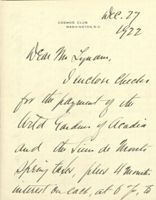 COSMOS CLUB
WASHINGTON, D.C.
Dec. 27
1922
Dear Mr. Lynam,
I inclose checks
for the payment of the
Wild Gardens of Acadia
and the Sieur de Monts
Spring tasks, plus 4 months
interest on each, at 6 %, to